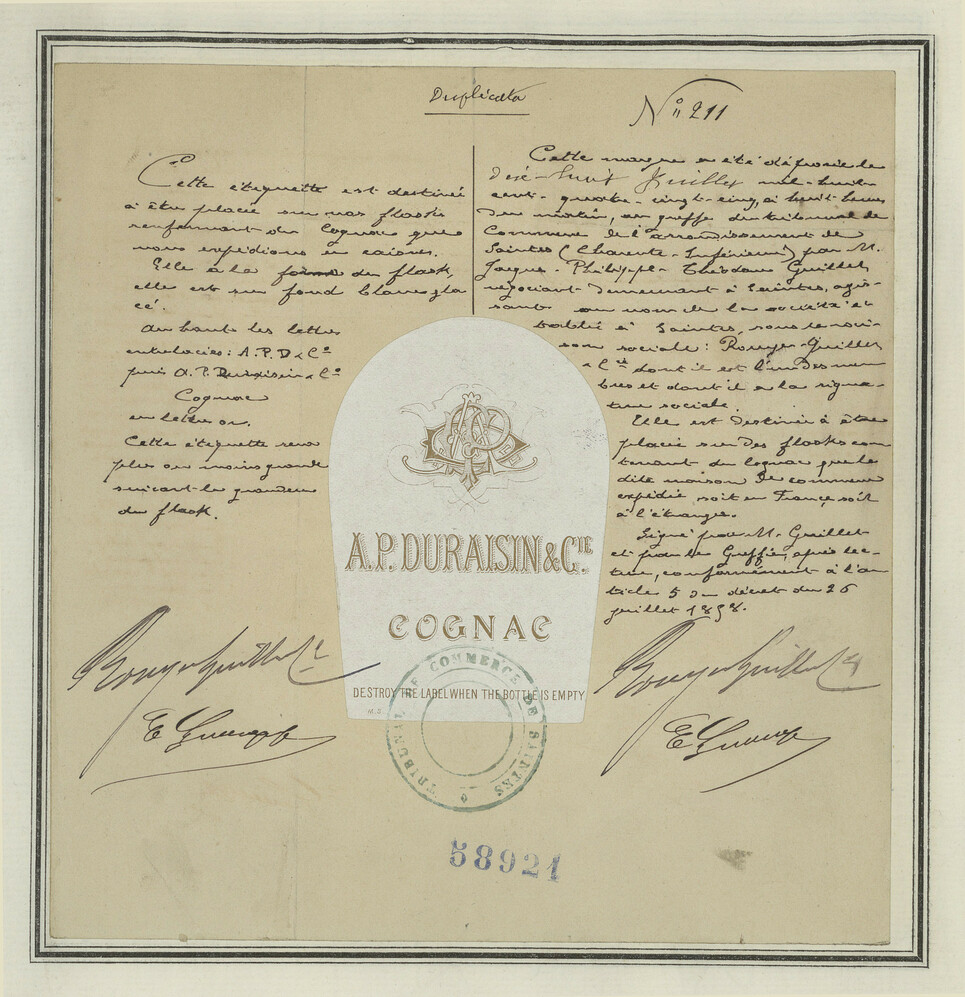 Duplicata
N° 211
Cette étiquette est destinée
à être placée sur nos flasks
renfermant du Cognac que
nous expédions en caisses.
Elle a la forme du flask,
elle est sur fond blanc gla
cé.
Au haut les lettres
entrelacées : A. P. D & Cº
puis A. P. Duraisin & Cº
Cognac
en lettres or.
Cette étiquette sera
plus ou moins grande
suivant la grandeur
du flask.
Cette marque a été déposée le
dix-huit Juillet mil-huit-
cent-quatre-vingt-cinq, à huit heures
du matin, au greffe du tribunal de
Commerce de l'arrondissement de
Saintes (Charente-Inférieure) par M.
Jacques-Philippe-Théodore Guillet
négociant demeurant à Saintes, agis-
sant au nom de la société é-
tablie à Saintes, sous la rai-
son sociale : Rouyer-Guillet
& Cie dont il est l'un des mem
bres et dont il a la signa-
ture sociale.
Elle est destinée à être
placée sur des flasks con
tenant du Cognac que la
dite maison de commerce
expédie, soit en France, soit
à l'étranger.
Signé par M. Guillet
et par le Greffier, après lec-
ture, conformément à l'ar
ticle 5 du décret du 26
juillet 1858.
A.P. DURAISIN & CIE.
COGNAC
DESTROY THE LABEL WHEN THE BOTTLE IS EMPTY
Rouyer Guillet & Cº
Rouyer Guillet & Cº
TRIBUNAL DE COMMERCE DE SAINTES
58921